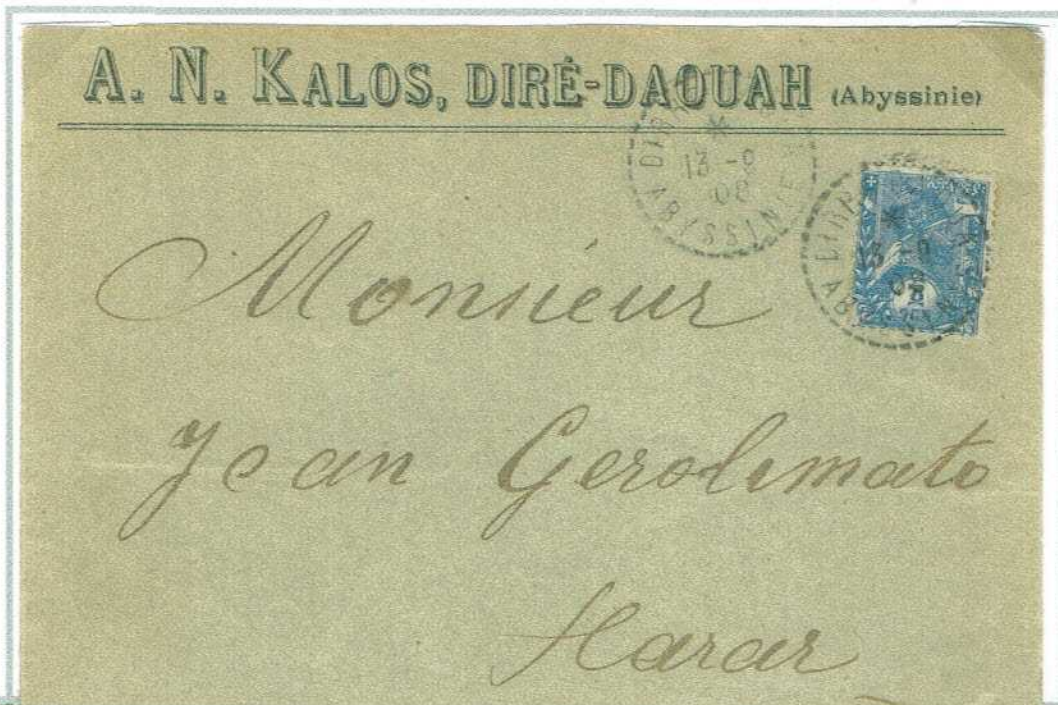 A. N. KALOS, DIRÉ-DAOUAH (Abyssinie)
13 -9
08
ABYSSINIE
13 -9
08
Monsieur
Jean Gerolimato
Harar